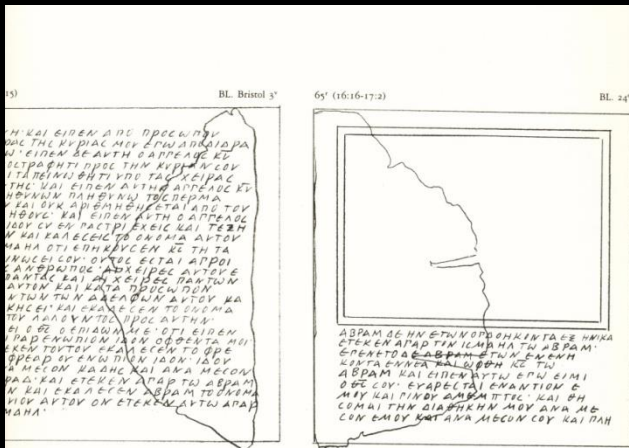 15)
BL. Bristol 3ᵛ
Η· ΚΑΙ ΕΙΠΕΝ ΑΠΟ ΠΡΟΣΩΠΟΥ
ΡΑC ΤΗC ΚΥΡΙΑC ΜΟΥ ΕΓΩ ΑΠΟΔΙΔΡΑ
Ω· ΕΙΠΕΝ ΔΕ ΑΥΤΗ Ο ΑΓΓΕΛΟC Κ̅Υ̅
ΟCΤΡΑΦΗΤΙ ΠΡΟC ΤΗΝ ΚΥΡΙΑΝ CΟΥ
Ι ΤΑΠΕΙΝΩΘΗΤΙ ΥΠΟ ΤΑC ΧΕΙΡΑC
ΤΗC· ΚΑΙ ΕΙΠΕΝ ΑΥΤΗ Ο ΑΓΓΕΛΟC Κ̅Υ̅
ΗΘΥΝΩΝ ΠΛΗΘΥΝΩ ΤΟ CΠΕΡΜΑ
Υ ΚΑΙ ΟΥΚ ΑΡΙΘΜΗΘΗCΕΤΑΙ ΑΠΟ ΤΟΥ
ΗΘΟΥC· ΚΑΙ ΕΙΠΕΝ ΑΥΤΗ Ο ΑΓΓΕΛΟC
ΙΔΟΥ CΥ ΕΝ ΓΑCΤΡΙ ΕΧΕΙC ΚΑΙ ΤΕΞΗ
Ν ΚΑΙ ΚΑΛΕCΕΙC ΤΟ ΟΝΟΜΑ ΑΥΤΟΥ
ΜΑΗΛ ΟΤΙ ΕΠΗΚΟΥCΕΝ Κ̅C̅ ΤΗ ΤΑ
ΙΝΩCΕΙ CΟΥ· ΟΥΤΟC ΕCΤΑΙ ΑΓΡΟΙ
C ΑΝΘΡΩΠΟC· ΑΙ ΧΕΙΡΕC ΑΥΤΟΥ Ε
ΠΑΝΤΑC ΚΑΙ ΑΙ ΧΕΙΡΕC ΠΑΝΤΩΝ
ΑΥΤΟΝ ΚΑΙ ΚΑΤΑ ΠΡΟCΩΠΟΝ
ΝΤΩΝ ΤΩΝ ΑΔΕΛΦΩΝ ΑΥΤΟΥ ΚΑ
ΚΗCΕΙ· ΚΑΙ ΕΚΑΛΕCΕΝ ΤΟ ΟΝΟΜΑ
ΤΟΥ ΛΑΛΟΥΝΤΟC ΠΡΟC ΑΥΤΗΝ·
ΕΙ Ο Θ̅C̅ Ο ΕΠΙΔΩΝ ΜΕ· ΟΤΙ ΕΙΠΕΝ
ΓΑΡ ΕΝΩΠΙΟΝ ΙΔΟΝ ΟΦΘΕΝΤΑ ΜΟΙ
ΕΚΕΝ ΤΟΥΤΟΥ ΕΚΑΛΕCΕΝ ΤΟ ΦΡΕ
ΦΡΕΑΡ ΟΥ ΕΝΩΠΙΟΝ ΙΔΟΝ· ΙΔΟΥ
Α ΜΕCΟΝ ΚΑΔΗC ΚΑΙ ΑΝΑ ΜΕCΟΝ
ΡΑΔ· ΚΑΙ ΕΤΕΚΕΝ ΑΓΑΡ ΤΩ ΑΒΡΑΜ
Ν ΚΑΙ ΕΚΑΛΕCΕΝ ΑΒΡΑΜ ΤΟ ΟΝΟΜΑ
ΥΙΟΥ ΑΥΤΟΥ ΟΝ ΕΤΕΚΕΝ ΑΥΤΩ ΑΓΑΡ
ΜΑΗΛ·
65ʳ (16:16-17:2)
BL. 24ʳ
ΑΒΡΑΜ ΔΕ ΗΝ ΕΤΩΝ ΟΓΔΟΗΚΟΝΤΑ ΕΞ ΗΝΙΚΑ
ΕΤΕΚΕΝ ΑΓΑΡ ΤΟΝ ΙCΜΑΗΛ ΤΩ ΑΒΡΑΜ·
ΕΓΕΝΕΤΟ ΔΕ ΑΒΡΑΜ ΕΤΩΝ ΕΝΕΝΗ
ΚΟΝΤΑ ΕΝΝΕΑ ΚΑΙ ΩΦΘΗ Κ̅C̅ ΤΩ
ΑΒΡΑΜ ΚΑΙ ΕΙΠΕΝ ΑΥΤΩ ΕΓΩ ΕΙΜΙ
Ο Θ̅C̅ CΟΥ· ΕΥΑΡΕCΤΑΙ ΕΝΑΝΤΙΟΝ Ε
ΜΟΥ ΚΑΙ ΓΙΝΟΥ ΑΜΕΜΠΤΟC· ΚΑΙ ΘΗ
CΟΜΑΙ ΤΗΝ ΔΙΑΘΗΚΗΝ ΜΟΥ ΑΝΑ ΜΕ
CΟΝ ΕΜΟΥ ΚΑΙ ΑΝΑ ΜΕCΟΝ CΟΥ ΚΑΙ ΠΛΗ